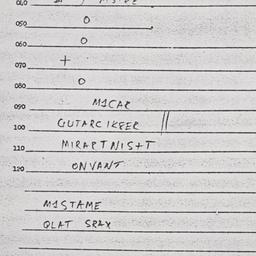 050 O
060 O
070 +
080 O
090 M1CAR
100 GUTARCIKEER ||
110 MIRARTNIS+T
120 ONVANT
M1STAME
QLAT SRAX